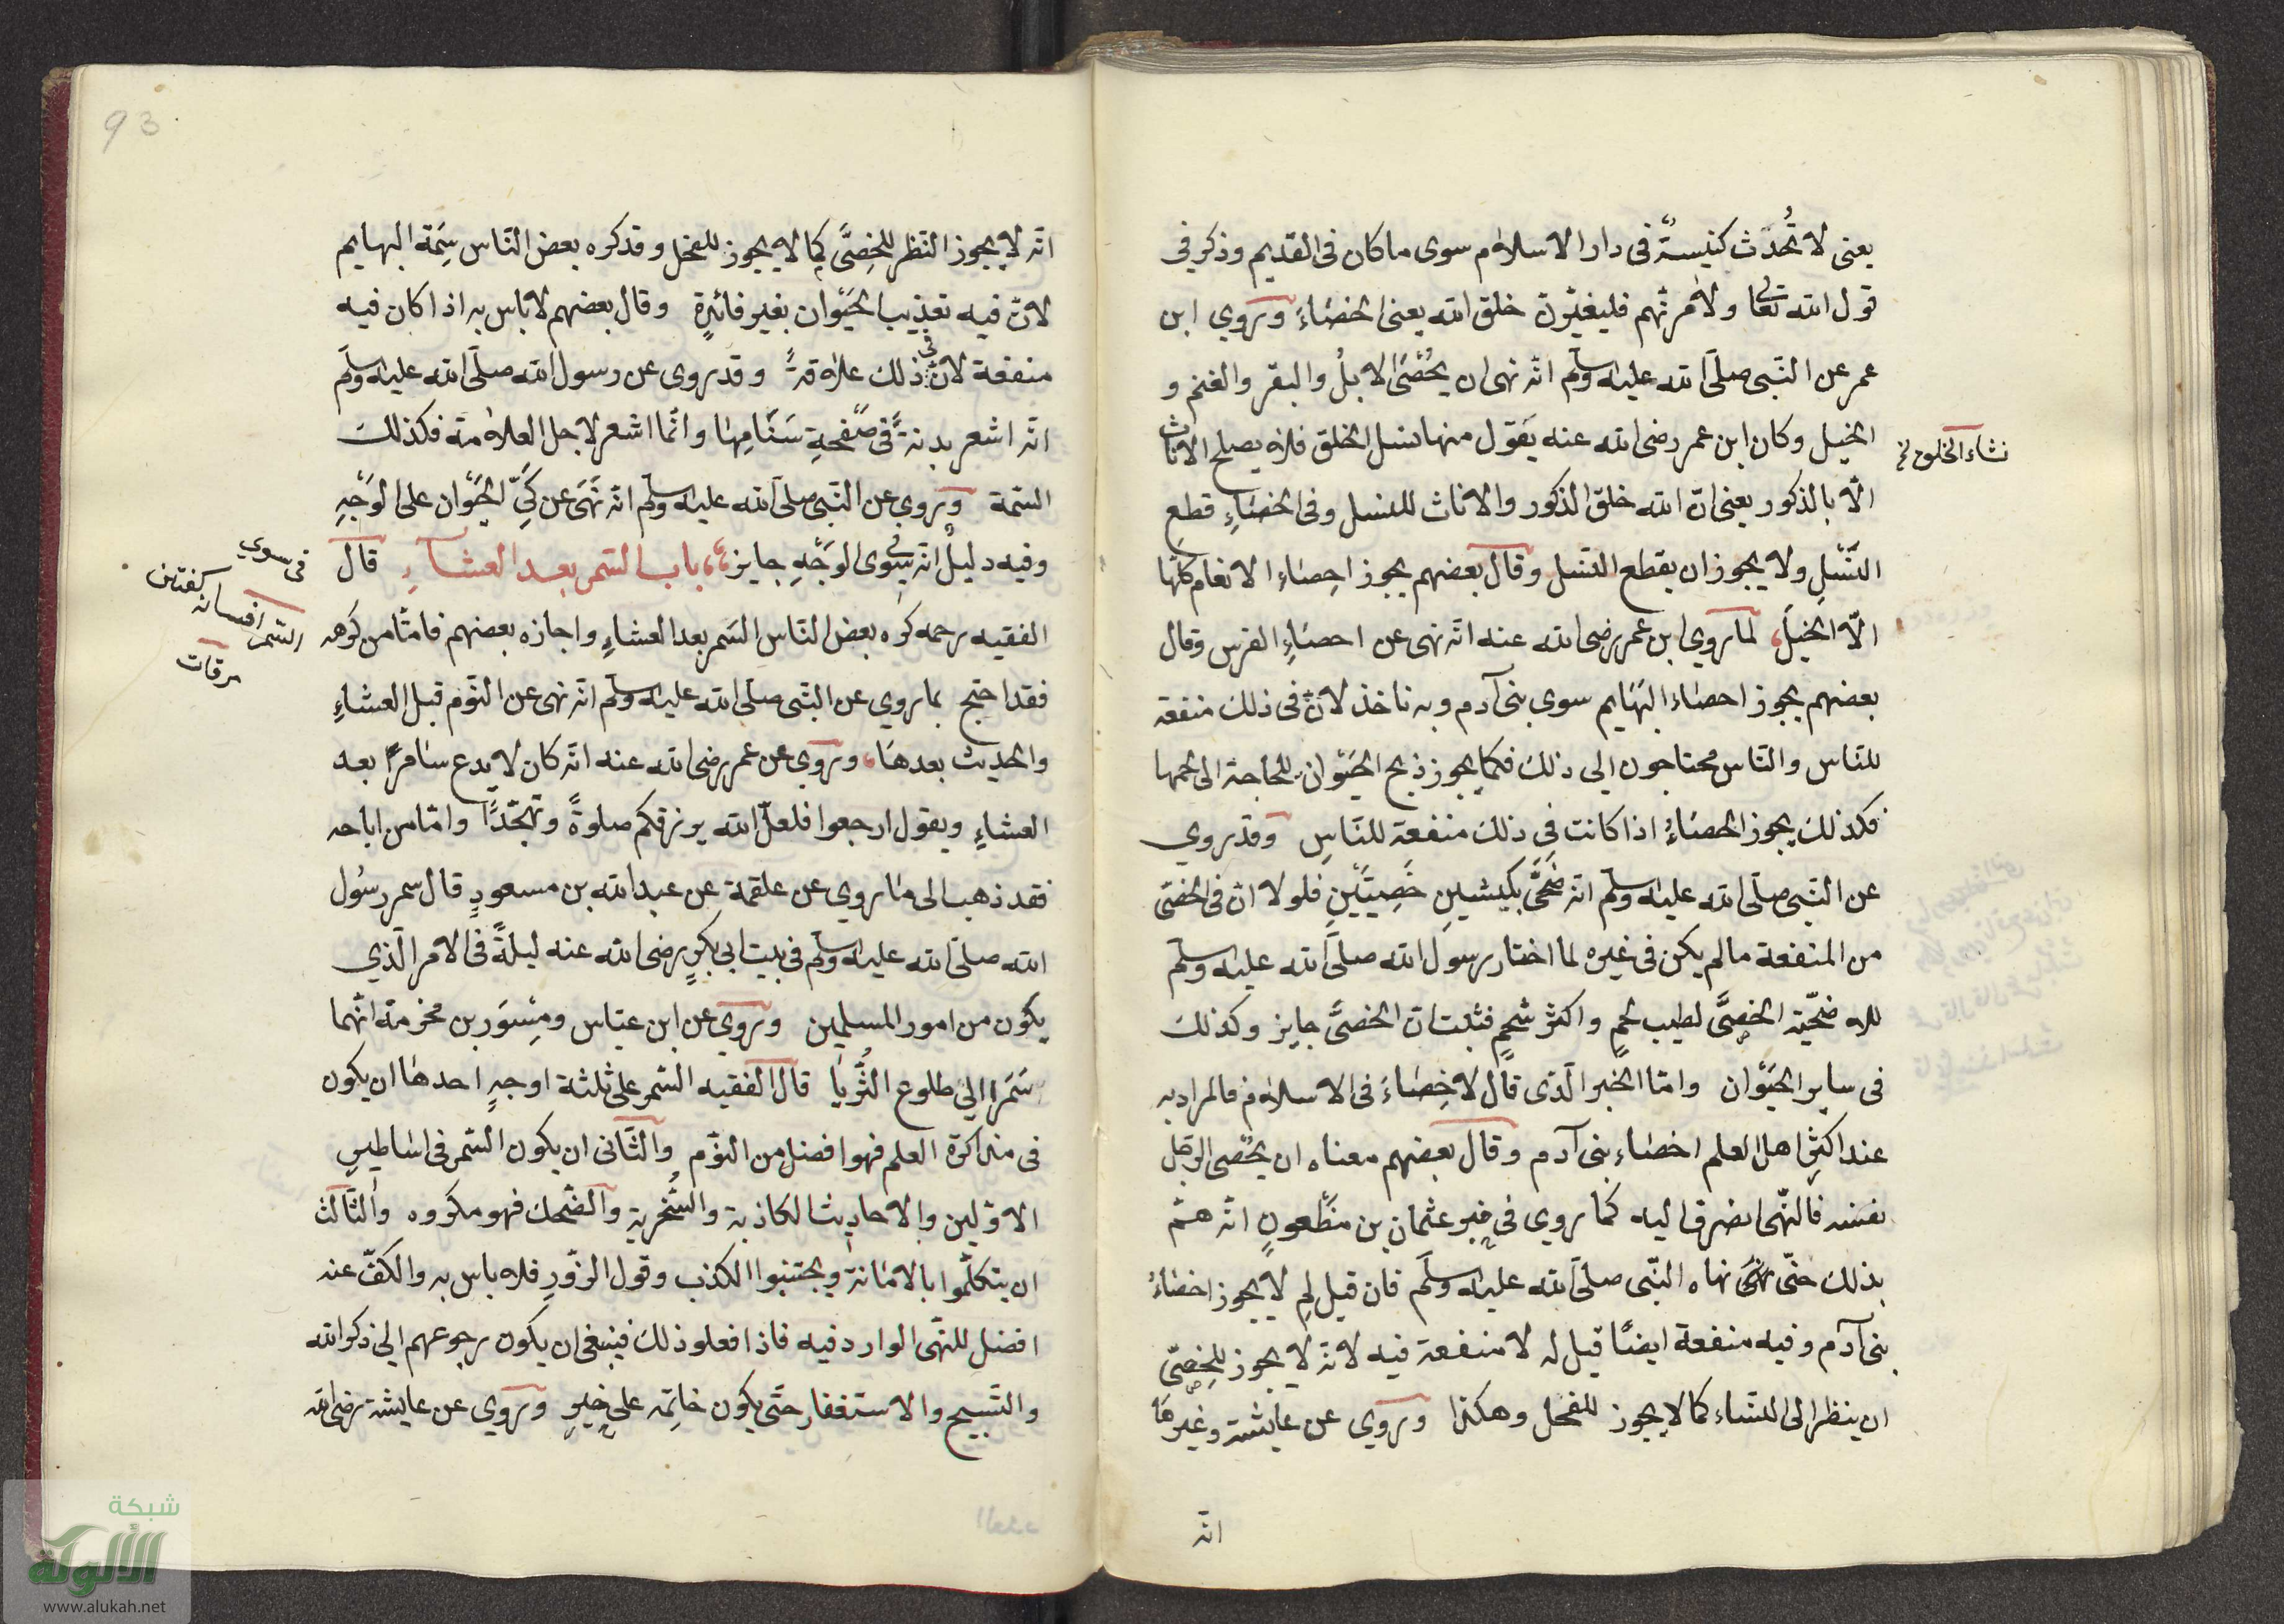 يعنى لا تُحدَث كنيسةٌ فى دار الاسلام سوى ما كان فى القديم وذكر في
قول الله تعالى ولآمرنّهم فليغيّرنّ خلق الله يعنى الخصَاءَ وروي ابن
عمر عن النّبى صلّى الله عليه وسلّم انّه نهى ان يُخصَى الابلُ والبقر والغنم و
الخيل وكان ابن عمر رضى الله عنه يقول منها نسل الخلق فلا يصلح الاناث
نشاء الخلق
الّا بالذكور يعنى انّ الله خلق الذكور والاناث للنسل وفى الخصَاءِ قطع
النّسْلِ ولا يجوز ان يقطع النّسل وقال بعضهم يجوز اِحصَاء الانعام كلّها
الّا الخيلَ لما روي ابن عمر رضى الله عنه انّه نهى عن احصَاءِ الفرس وقال
بعضهم يجوز احصاء البهَايم سوي بنى آدم وبه ناخذ لانّ فى ذلك منفعة
للنّاس والنّاس محتاجون الي ذلك فكما يجوز ذبح الحَيْوان للحاجة الى لحمها
فكذلك يجوز الخصَاءُ اذا كانت فى ذلك منفعة للنّاسِ وقد روي
عن النّبى صلّى الله عليه وسلّم انّه ضَحَّى بكبشين خَصِيَّيْنِ فلولا انّ فى الخصّى
من المنفعة ما لم يكن فى غيره لما اختار رسول الله صلّى الله عليه وسلّم
للاضحيّة الخصِىَّ لطيب لحمٍ واكثر شحمٍ فثبت انّ الخصىَّ جايز وكذلك
فى ساير الحَيْوان وامّا الخبر الّذى قال لا خِصَاءَ فى الاسلام فالمراد به
عند اكثر اهل العلم اخصَاء بنى آدم وقال بعضهم معناه ان يخصى الرجل
نفسَه فالنّهى انصرف اليه كما روي فى خبر عثمان بن مظعونٍ انّه همّ
بذلك حتّى نهى نهاه النّبى صلّى الله عليه وسلّم فان قيل لِم لا يجوز اخصاءُ
بنى آدم وفيه منفعة ايضًا قيل له لا منفعة فيه لانّه لا يجوز للخِصىّ
ان ينظر الى النساء كما لا يجوز للفحل وهكذا وروي عن عايشة وغيرها
انّه
93
انّه لا يجوز النّظر للخِصىَّ كما لا يجوز للفحل وقد كره بعض النّاس سِمَة البهايم
لانّ فيه تعذيب الحَيْوان بغير فائدةٍ وقال بعضهم لا باس به اذا كان فيه
منفعة لانّ فى ذلك علامةً وقد روى عن رسول الله صلّى الله عليه وسلّم
انّه اشعر بدنةً فى صَفْحةِ سَنَامِهَا وانّما اشعر لاجل العلامة فكذلك
السّمة وروي عن النّبى صلّى الله عليه وسلّم انّه نَهَى عن كَىِّ الحَيْوَان على الوَجْهِ
وفيه دليلٌ انّه فى سوى الوَجْهِ جايز باب السّمر بعد العشاءِ قال
فى سوي
الفقيه رحمه كره بعض النّاس السّمر بعد العشاءِ واجازه بعضهم فامّا من كرهه
السّمر افسانه كفتن
مرقات
فقد احتج بما روي عن النّبى صلّى الله عليه وسلّم انّه نهى عن النّوم قبل العشاءِ
والحديث بعدهَا وروي عن عمر رضى الله عنه انّه كان لا يدع سَامرًا بعد
العشاءِ ويقول ارجعوا فلعلّ الله يرزقكم صلوةً وتهجّدًا وامّا من اباحه
فقد ذهب الى ما روي عن علقمة عن عبد الله بن مسعودٍ قال سمر رسُول
الله صلّى الله عليه وسلّم فى بيت ابى بكرٍ رضى الله عنه ليلةً فى الامر الّذي
يكون من امور المسلمين وروي عن ابن عبّاس ومِسْوَر بن مخرمة انّهما
سَمَرا الي طلوع الثُّريّا قال الفقيه السّمر على ثلثة اوجهٍ احدها ان يكون
فى مذاكرة العلم فهو افضل من النّوم والثّانى ان يكون السّمر فى اساطيرِ
الاوّلين والاحاديث الكاذبة والسُّخرية والضّحك فهو مكروه والثّالث
ان يتكلّموا بالامَانة ويجتنبوا الكذب وقول الزّورِ فلا باس به والكفّ عنه
افضل للنّهى الوارد فيه فاذا فعلو ذلك فينبغى ان يكون رجوعهم الى ذكر الله
والتّسبيح والاستغفار حتّى يكون خاتِمه على خيرٍ وروي عن عايشة رضى الله
شبكة
الألوكة
www.alukah.net